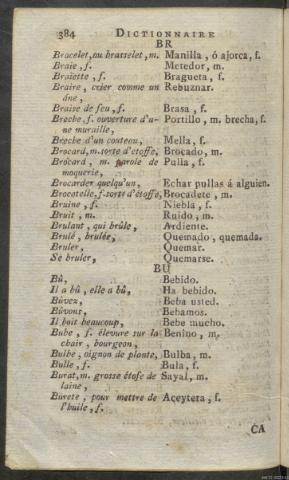 384 DICTIONNAIRE
BR
Bracelet, ou brasselet, m. Manilla, ó ajorca, f.
Braie, f. Metedor, m.
Braiette, f. Bragueta, f.
Braire, crier comme un Rebuznar.
âne,
Braise de feu, f. Brasa, f.
Breche, f. ouverture d'u- Portillo, m. brecha, f.
ne muraille,
Breche d'un couteau, Mella, f.
Brocard, m. sorte d'etoffe, Brocado, m.
Brocard, m. parole de Pulla, f.
moquerie,
Brocarder quelqu'un, Echar pullas á alguien.
Brocatelle, f. sorte d'étoffe, Brocadete, m.
Bruine, f. Niebla, f.
Bruit, m. Ruido, m.
Brulant, qui brûle, Ardiente.
Brulé, brulée, Quemado, quemada.
Bruler, Quemar.
Se bruler, Quemarse.
BU
Bû, Bebido.
Il a bû, elle a bû, Ha bebido.
Bûvez, Beba usted.
Bûvons, Bebamos.
Il boit beaucoup, Bebe mucho.
Bube, f. élevure sur la Benino, m.
chair, bourgeon,
Bulbe, oignon de plante, Bulba, m.
Bulle, f. Bula, f.
Burat, m. grosse étofe de Sayal, m.
laine,
Burete, pour mettre de Aceytera, f.
l'huile, f.
CA